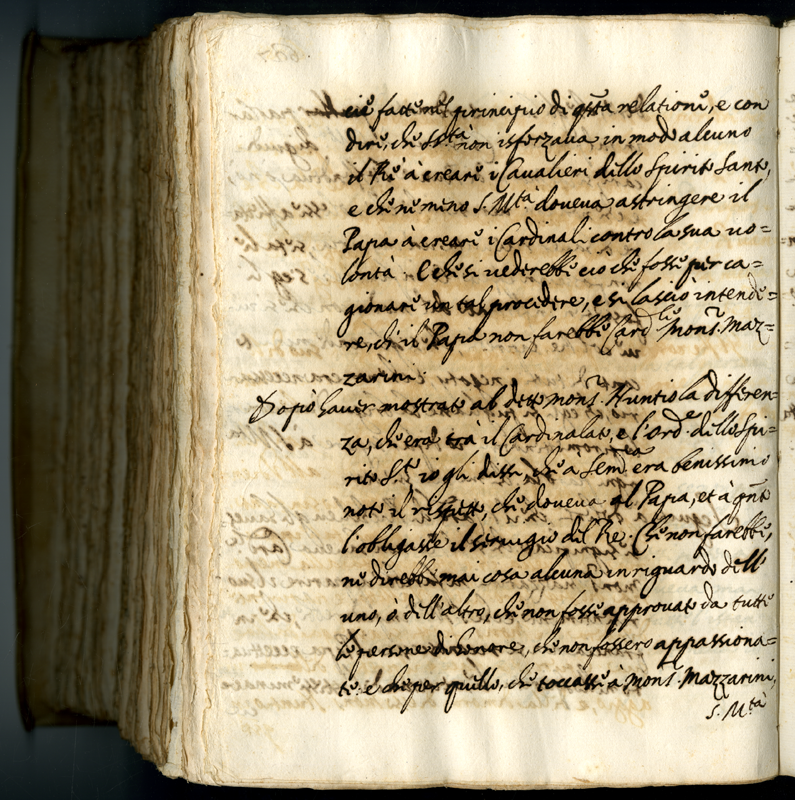 ciò fatto nel principio di qsta relatione, e con
dire, che S. Stà non isforzaua in modo alcuno
il Rè à creare i Caualieri dello Spirito Santo,
e che ne meno S. Mtà doueua astringere il
Papa à creare i Cardinali contro la sua uo=
lontà. E che si uederebbe ciò che fosse per ca=
gionare un tal procedere, e si lasciò intende=
re, che il Papa non farebbe Cardle Monsr. Maz=
zarini.
Dopo hauer mostrato al detto monsr. Nuntio la differen=
za, che era trà il Cardinalato, e l'orde. dello Spi=
rito Sto, io gli dissi, che a Semza era benissimo
noto il rispetto, che doueua al Papa, et à qnto
l'obligasse il seruigio del Rè. Che non farebbe,
ne direbbe mai cosa alcuna in riguardo dell'
uno, ò dell'altro, che non fosse approuato da tutte
le persone di honore, che non fossero appassiona=
te. e che per quello, che toccasse à Monsr. Mazzarini,
S. Mtà